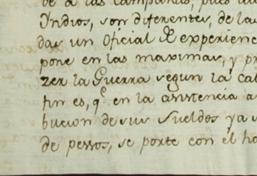 de a las campañas, pues las
Indios, son diferentes, de las
dar un Oficial de experienc
pone en las maximas, y p
zer la Guerra segun la cal
fin es, q.e en la asistencia a
bucion de sus sueldos ya s
de pessos, se porte con el ho